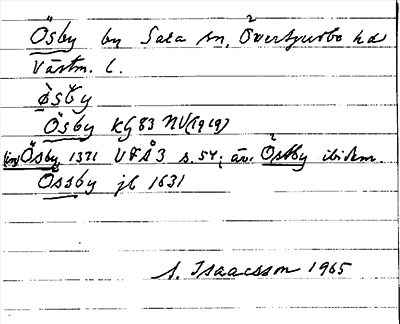 Ösby by Sala sn, Övertjurbo hd
Västm. l.
ø̀sby
Ösby KG 83 NV (1919)
(in) Ösby 1371 VFÅ 3 s. 54; äv. Östby ibidem.
Össby jb 1631
S. Isaacsson 1965